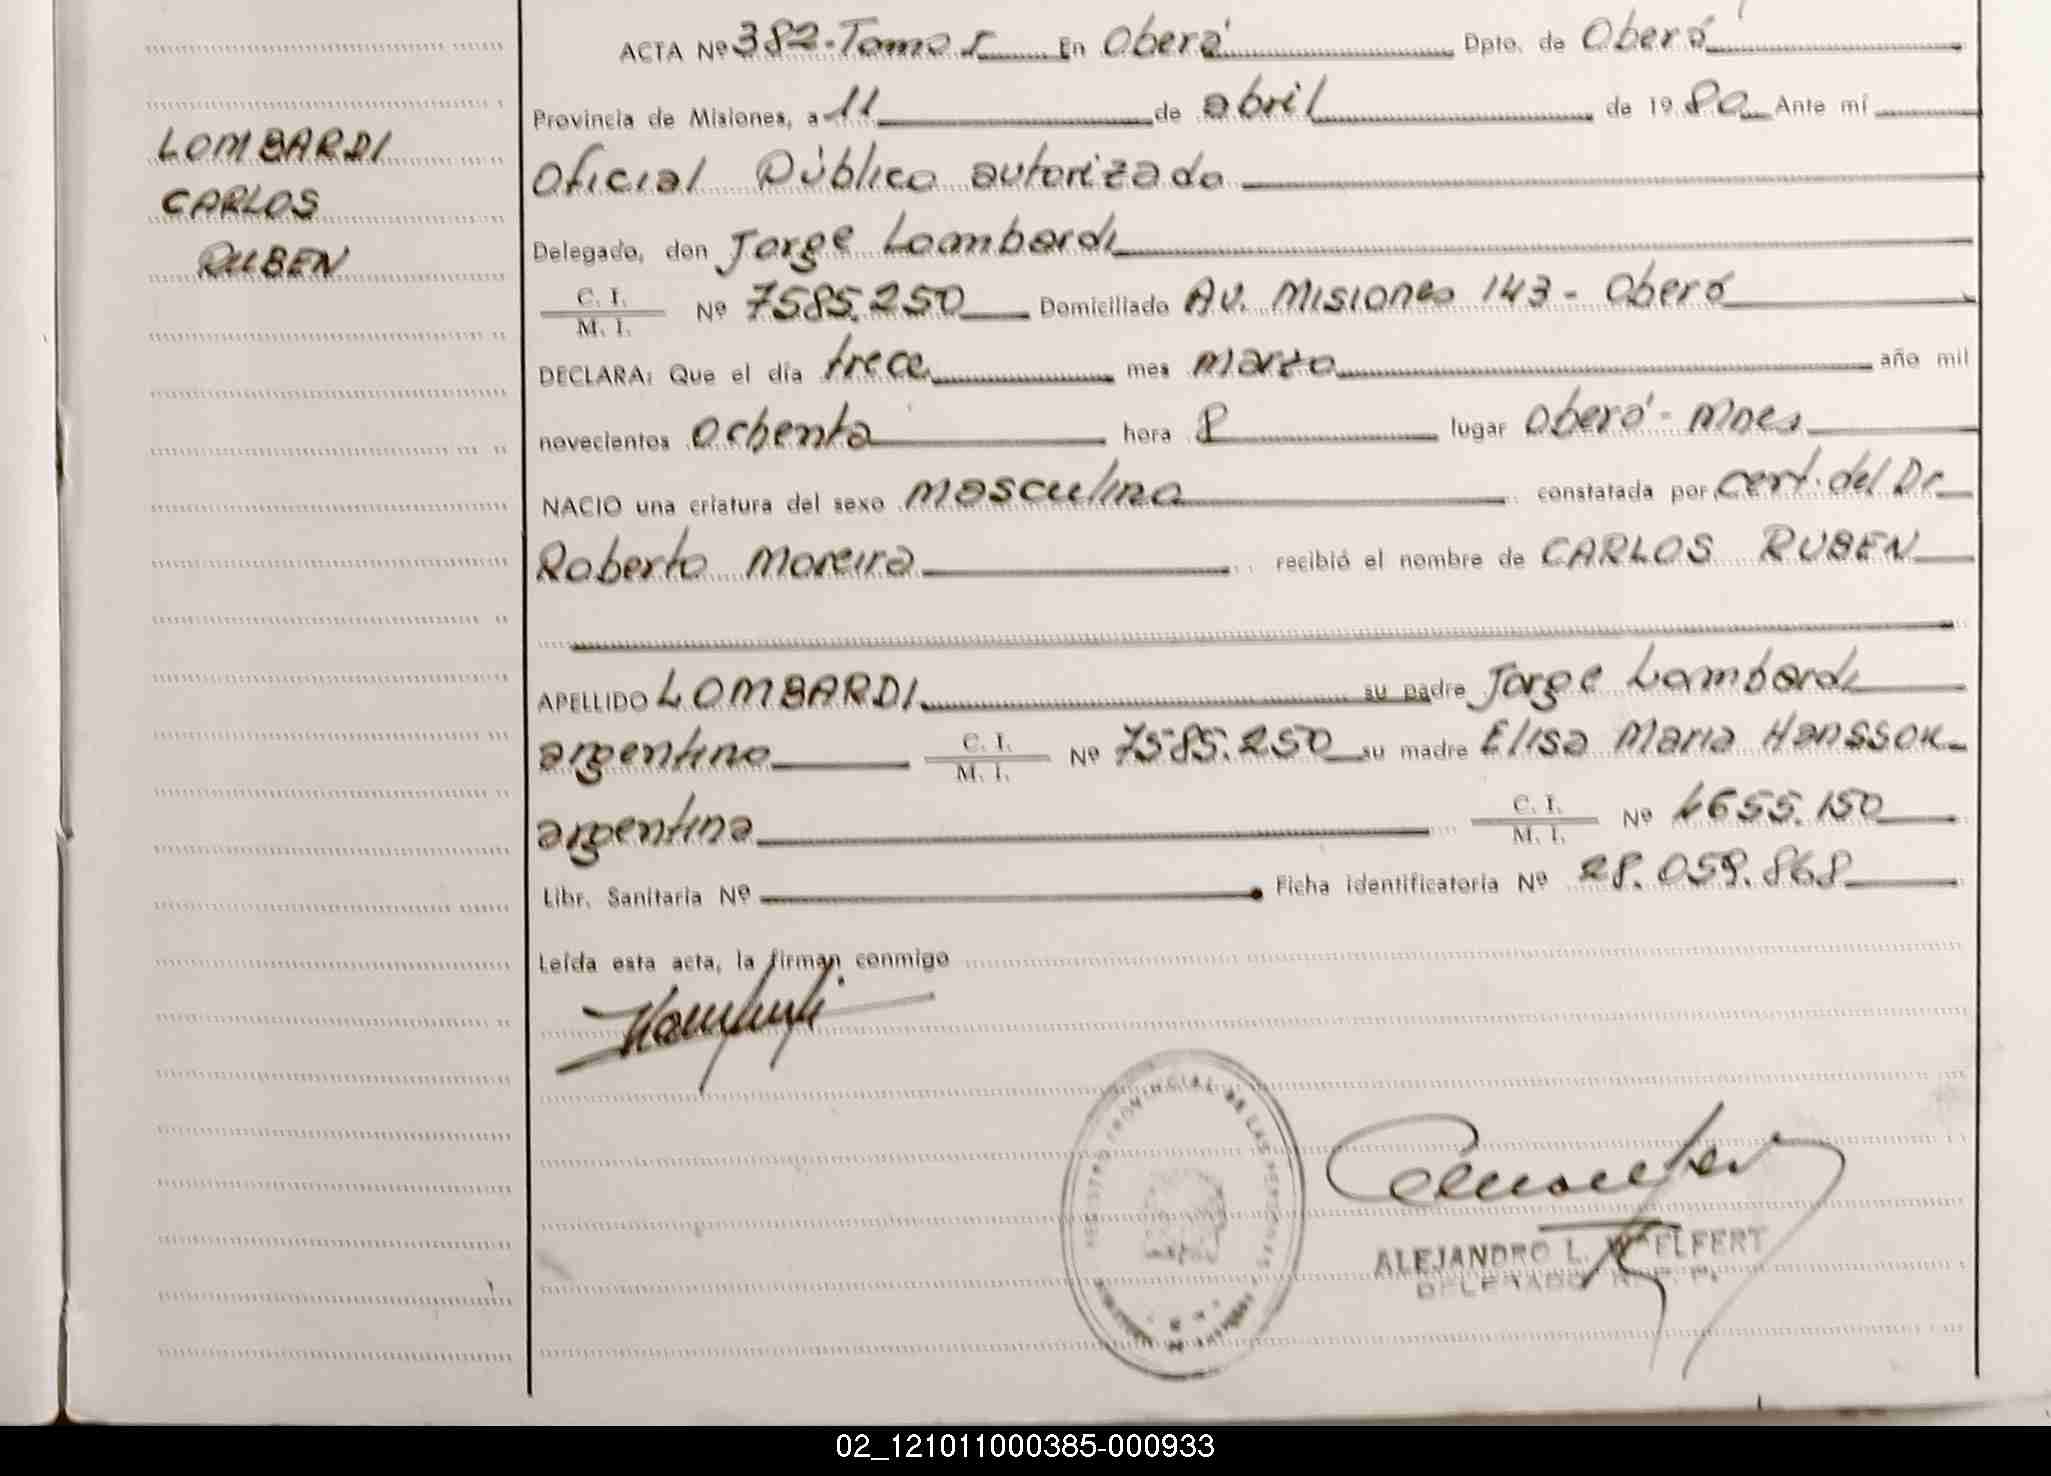 LOMBARDI
CARLOS
RUBEN
ACTA Nº 382-Tomo I En Oberá Dpto. de Oberá
Provincia de Misiones, a 11 de abril de 1980 Ante mí
Oficial Público autorizado
Delegado, don Jorge Lombardi
C. I.
M. I. Nº 7585.250 Domiciliado Av. Misiones 143 - Oberá
DECLARA: Que el día trece mes marzo año mil
novecientos ochenta hora 8 lugar Oberá - Mnes
NACIO una criatura del sexo masculino constatada por cert. del Dr
Roberto Moreira recibió el nombre de CARLOS RUBEN
APELLIDO LOMBARDI su padre Jorge Lombardi
argentino C. I. M. I. Nº 7585.250 su madre Elisa Maria Hansson
argentina C. I. M. I. Nº 4655.150
Libr. Sanitaria Nº Ficha identificatoria Nº 28.059.868
Leída esta acta, la firman conmigo
REGISTRO PROVINCIAL DE LAS PERSONAS
ALEJANDRO L. WELFERT
DELEGADO R. P. P.
02_121011000385-000933